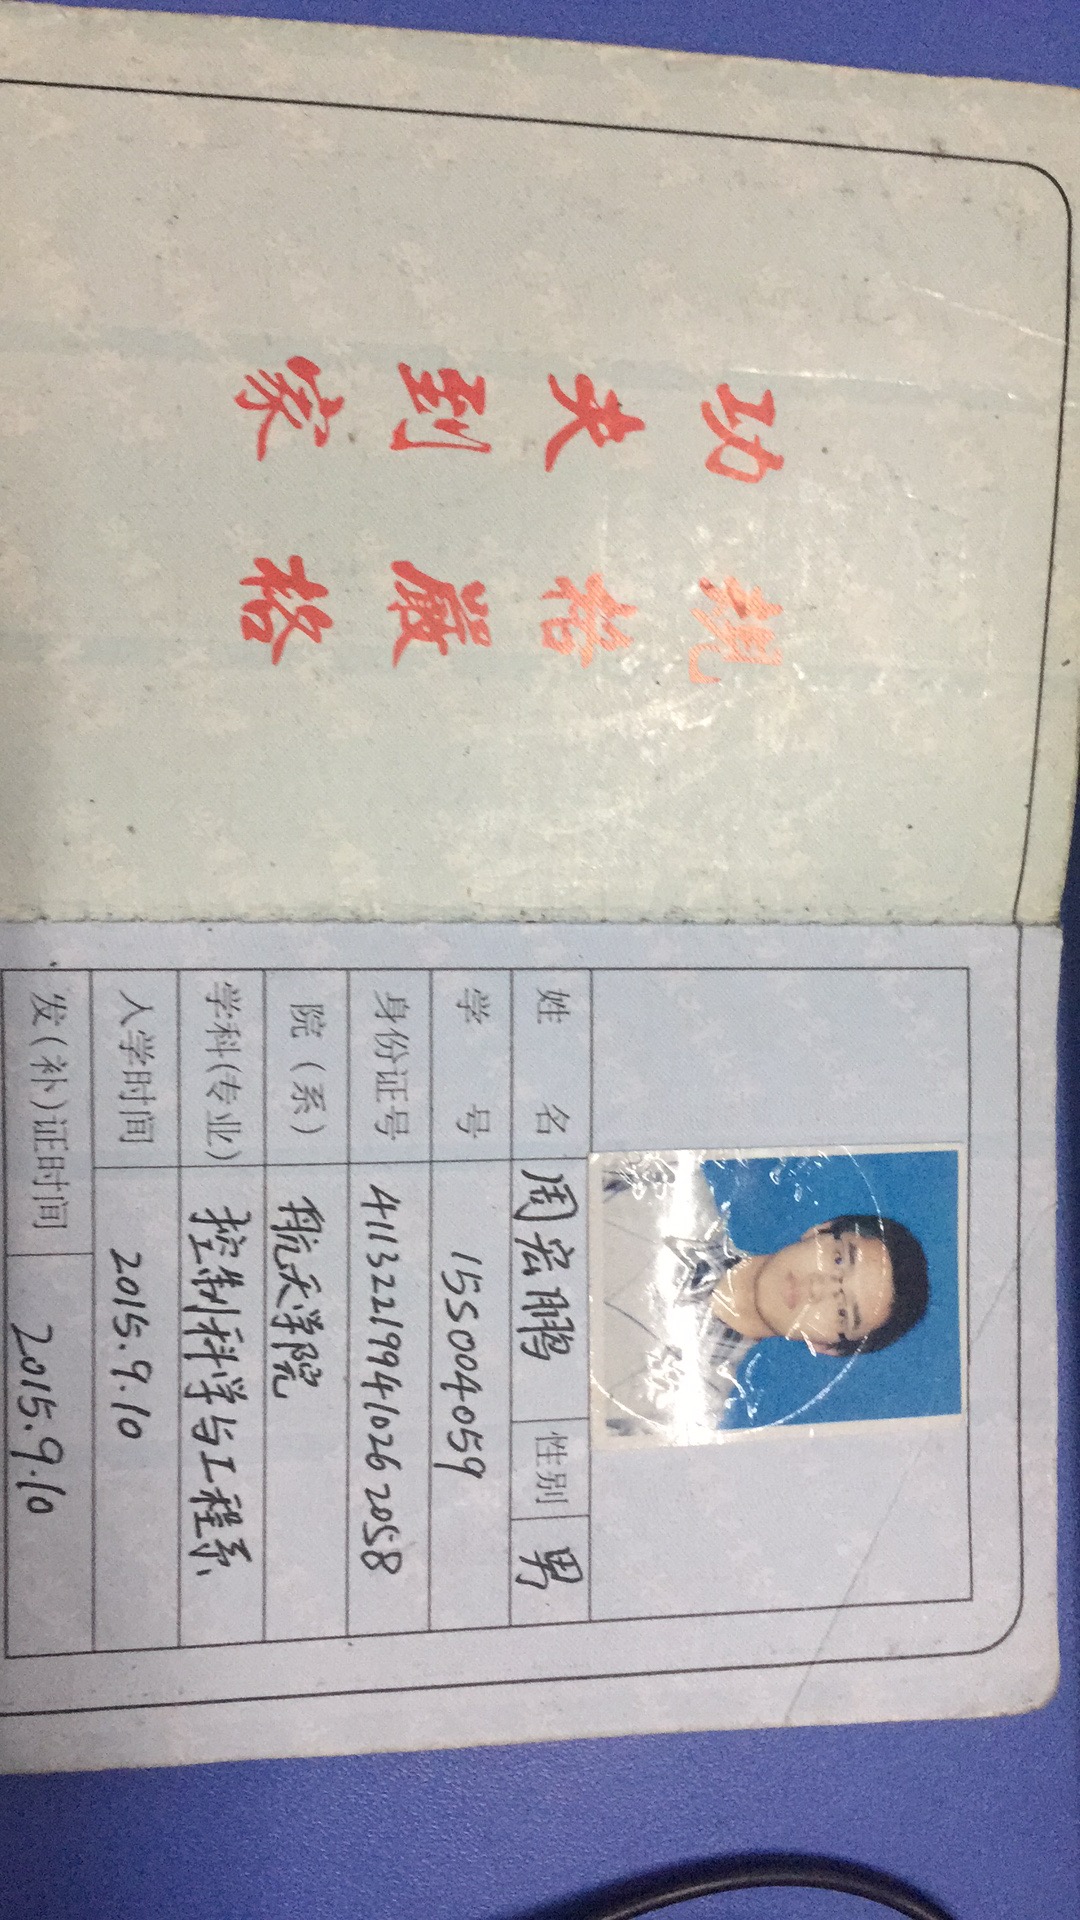 規格嚴格
功夫到家
姓 名 周宏鹏 性别 男
学 号 15S004059
身份证号 411322199410262058
院（系） 航天学院
学科(专业) 控制科学与工程系
入学时间 2015.9.10
发(补)证时间 2015.9.10